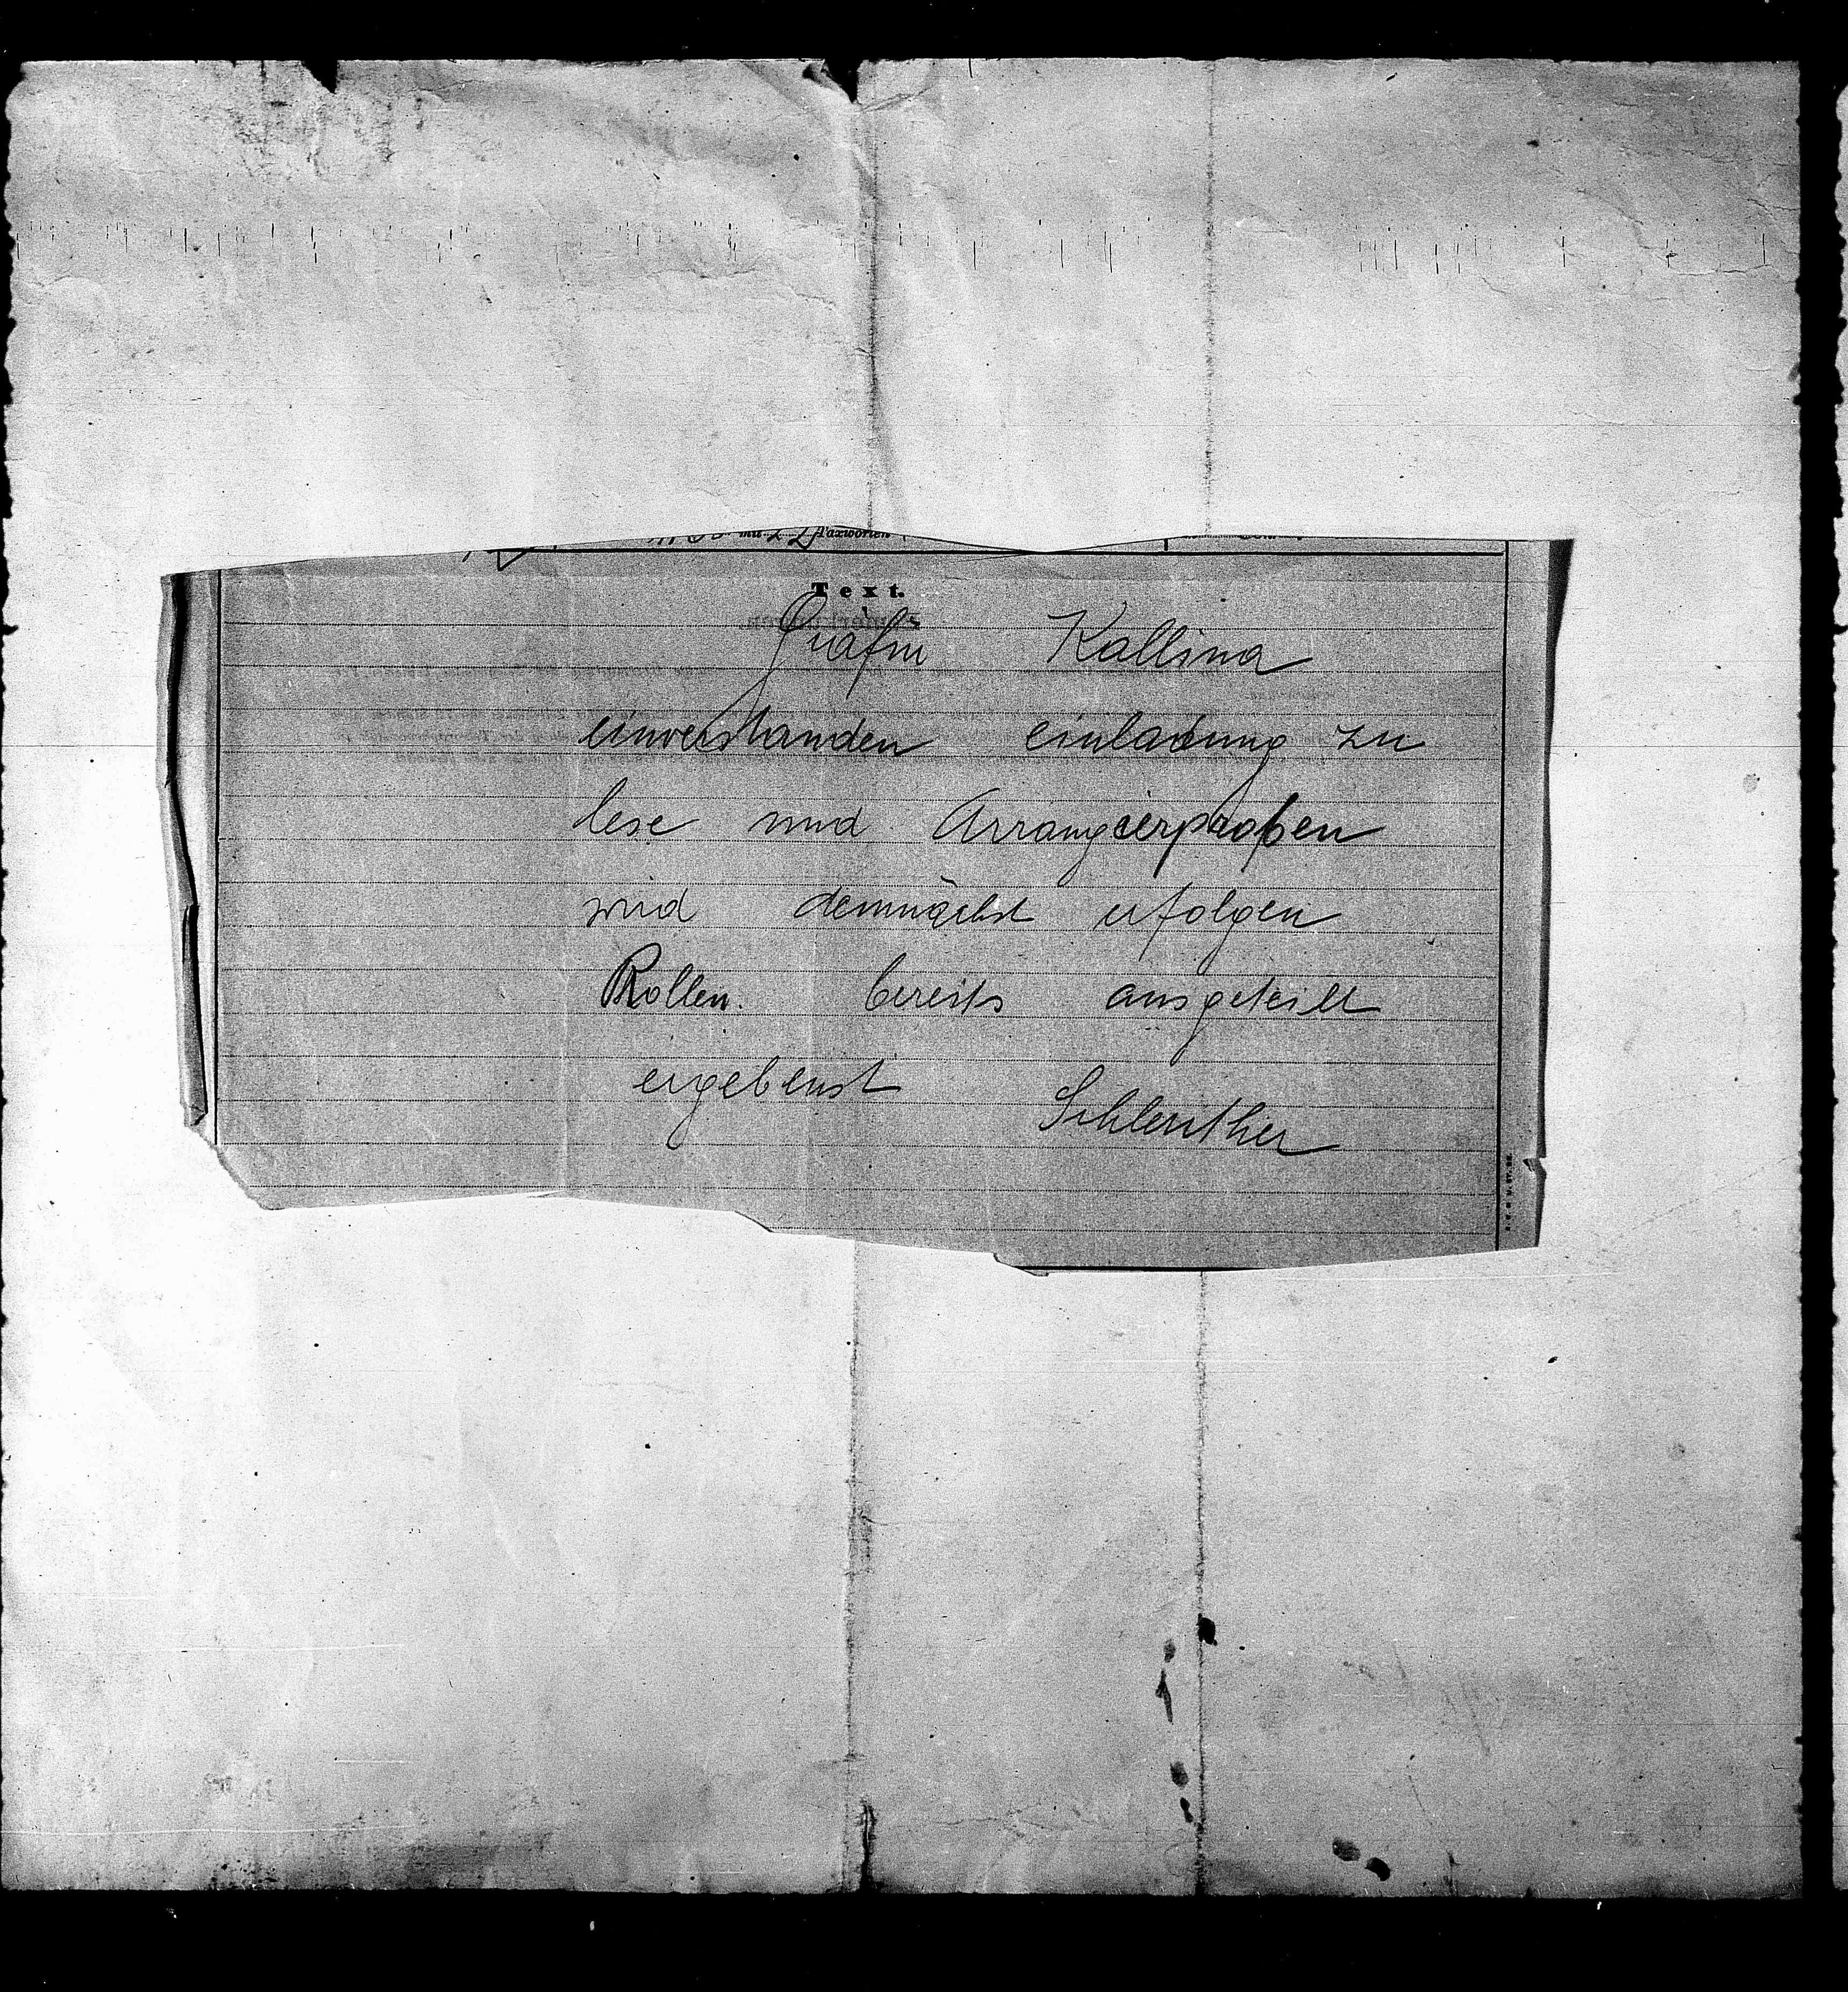 mit 22 Taxworten
Text.
Gräfin Kallina
einverstanden einladung zu
lese und Arrangierproben
wird demnächst erfolgen
Rollen bereits ausgeteilt
ergebenst
Schlenther